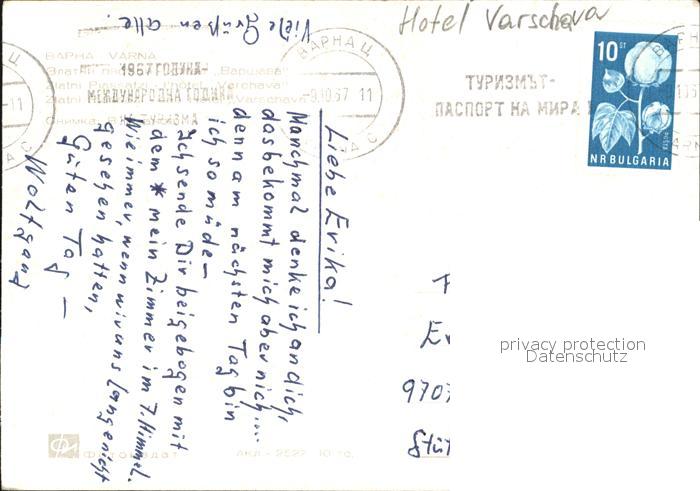 Viele Grüßen alle.
Hotel Varschava
ВАРНА VARNA
"Варшава"
1967 ГОДИНА-
МЕЖДУНАРОДНА ГОДИНА
ВАРНА Ц
-9.10.67 11
ТУРИЗМЪТ-
ПАСПОРТ НА МИРА
10 СТ
NR BULGARIA
Liebe Erika!
Manchmal denke ich an dich,
das bekommt mich aber nich...
denn am nächsten Tag bin
ich so müde-
Ich sende Dir beigebogen mit
dem * mein Zimmer im 7. Himmel.
Wie immer, wenn wir uns lange nicht
gesehen hatten,
Guten Tag -
Wolfgang
Ev
9707
Stut
privacy protection
Datenschutz
Фотоиздат
АКЛ - 2527